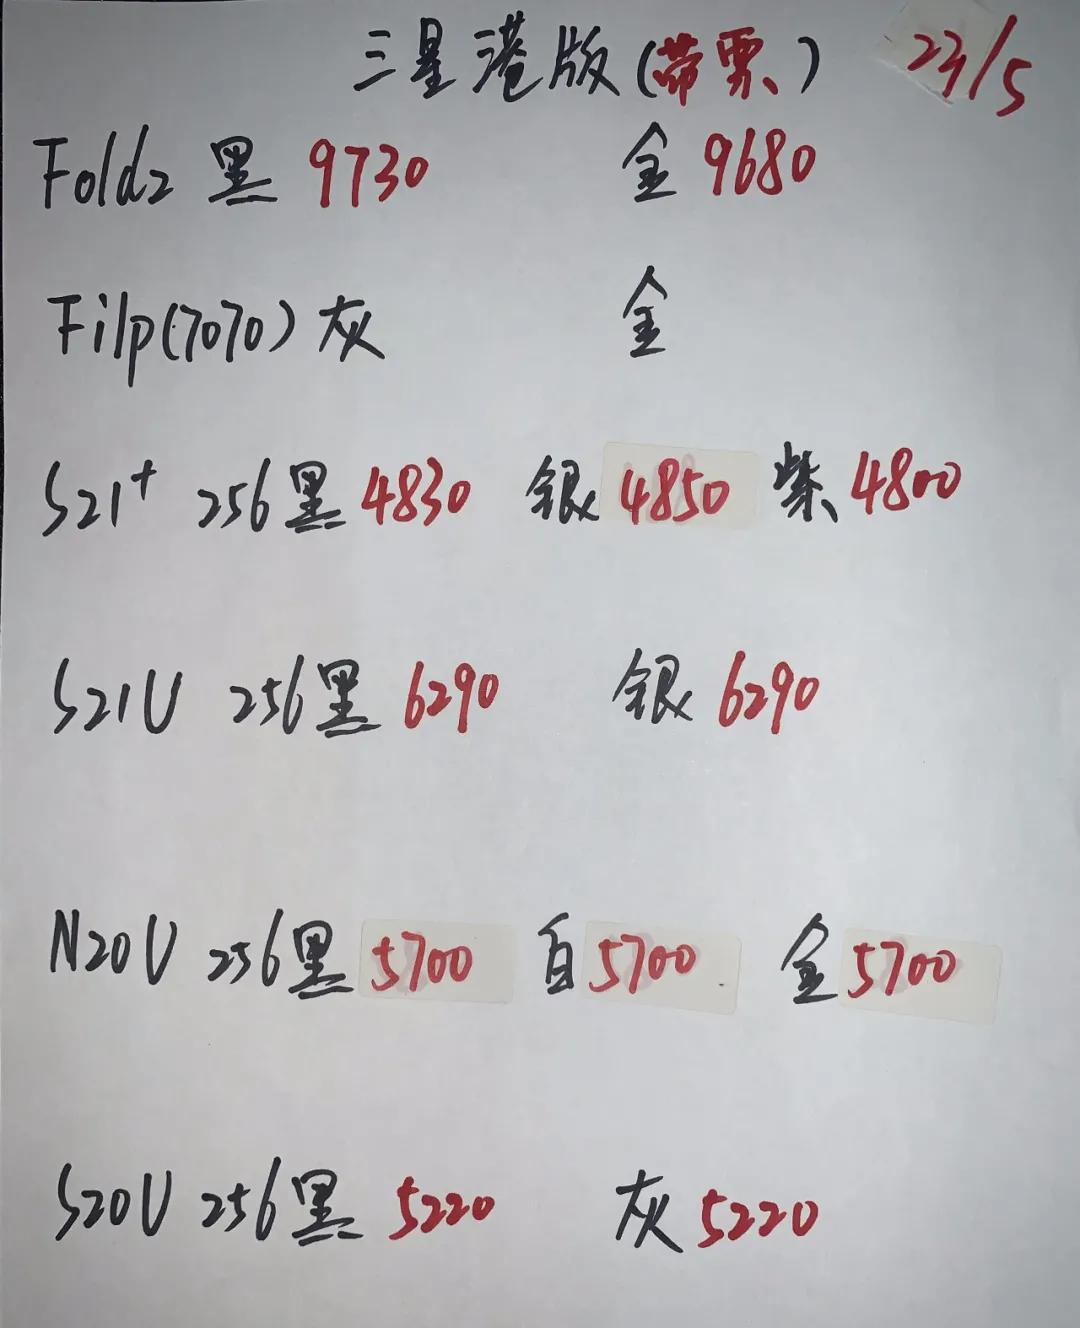 三星港版(带票) 23/5
Fold2 黑 9730 金 9680
Filp(7070) 灰 金
S21+ 256 黑 4830 银 4850 紫 4800
S21U 256 黑 6290 银 6290
N20U 256 黑 5700 白 5700 金 5700
S20U 256 黑 5220 灰 5220